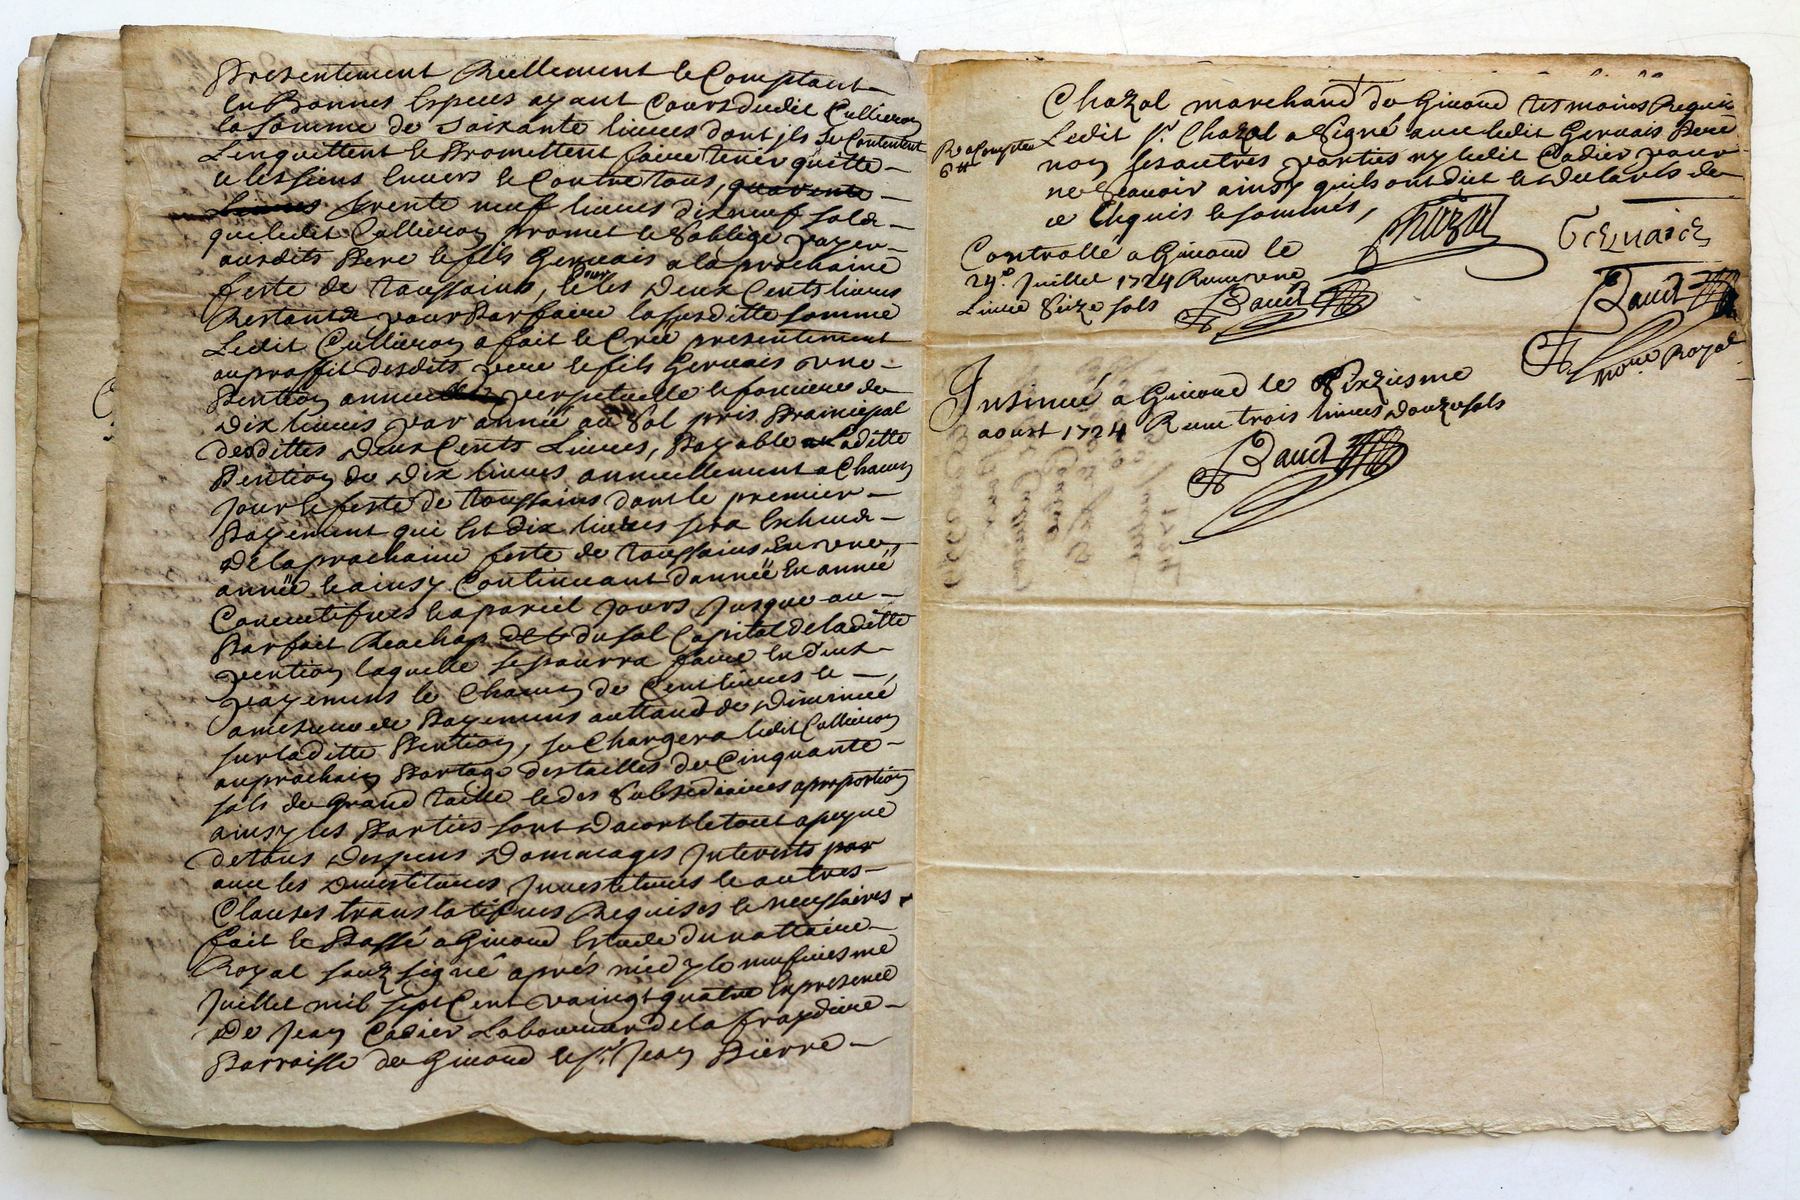 Presentement Reellement le Comptant
En Bonnes Especes ayant Cours dudit Cullieron
la somme de Soixante livres dont jls se Contentent
L'enquittent le Promettent faire tenir quitte
a les siens Envers le Contre tous, quarente
Livres trente neuf livres dix neuf sols
que ledit Cullieron promet le s'oblige payer
ausdits Pere le fils Gervais a la prochaine
feste de toussains, le les Deux Cents livres
Restants pour Parfaire la susditte somme
Ledit Cullieron a fait le Creé presentement
au proffit desdits pere le fils Gervais une
Pention annuelle perpetuelle le fonciere de
Dix livres par anneé au sol pris Principal
desdittes Deux Cents Livres, Payable Laditte
Pention de Dix livres annuellement a Chacun
Jour le feste de toussains dont le premier
Payement qui Est dix livres sera Escheude
De la prochaine feste de toussains En une
anneë le ainsy Continuant d'anneë En anneë
Consecutifves le a pareil Jours Jusque au
Parfait Reachap du sol Capital de laditte
pention laquelle se pourra faire En deux
payemens le Chacun de Cent livres le
a mesure de Payemens auttant de Diminué
sur laditte Pention, se Chargera ledit Cullieron
au prochain Partage des tailles de Cinquante
sols de Grand taille le des Subsediaires a proportion
ainsy les Parties sont D'acort le tout a peyne
de tous Despens Domacages Interests par
avec les Devestitures Investitures le autres
Clauses translatifves Requises le necessaires
fait le Passé a Givord Estude du nottaire
Royal souz signé aprés midy le neufviesme
Juillet mil sept Cent vaingt quatre En presence
De Jean Cadier Laboureur de la frapdiere
Parroisse de Givord le sr. Jean Pierre
Chazal marchand de Givord tesmoins Requis
Ledit sr. Chazal a Signé avec ledit Gervais Pere
non les autres parties ny ledit Cadier pour
ne Scavoir ainsy quils ont dit le declarés de
ce Enquis le sommés,
R. a Compten
6 tt
Chazal
Gervaids
Controllé a Givord le
24e. Juillet 1724 Receu une
Livre Seize sols
Baud
Baud
nore. Royal
Insinué a Givord le Sixiesme
aoust 1724 Receu trois livres Douze sols
Baud